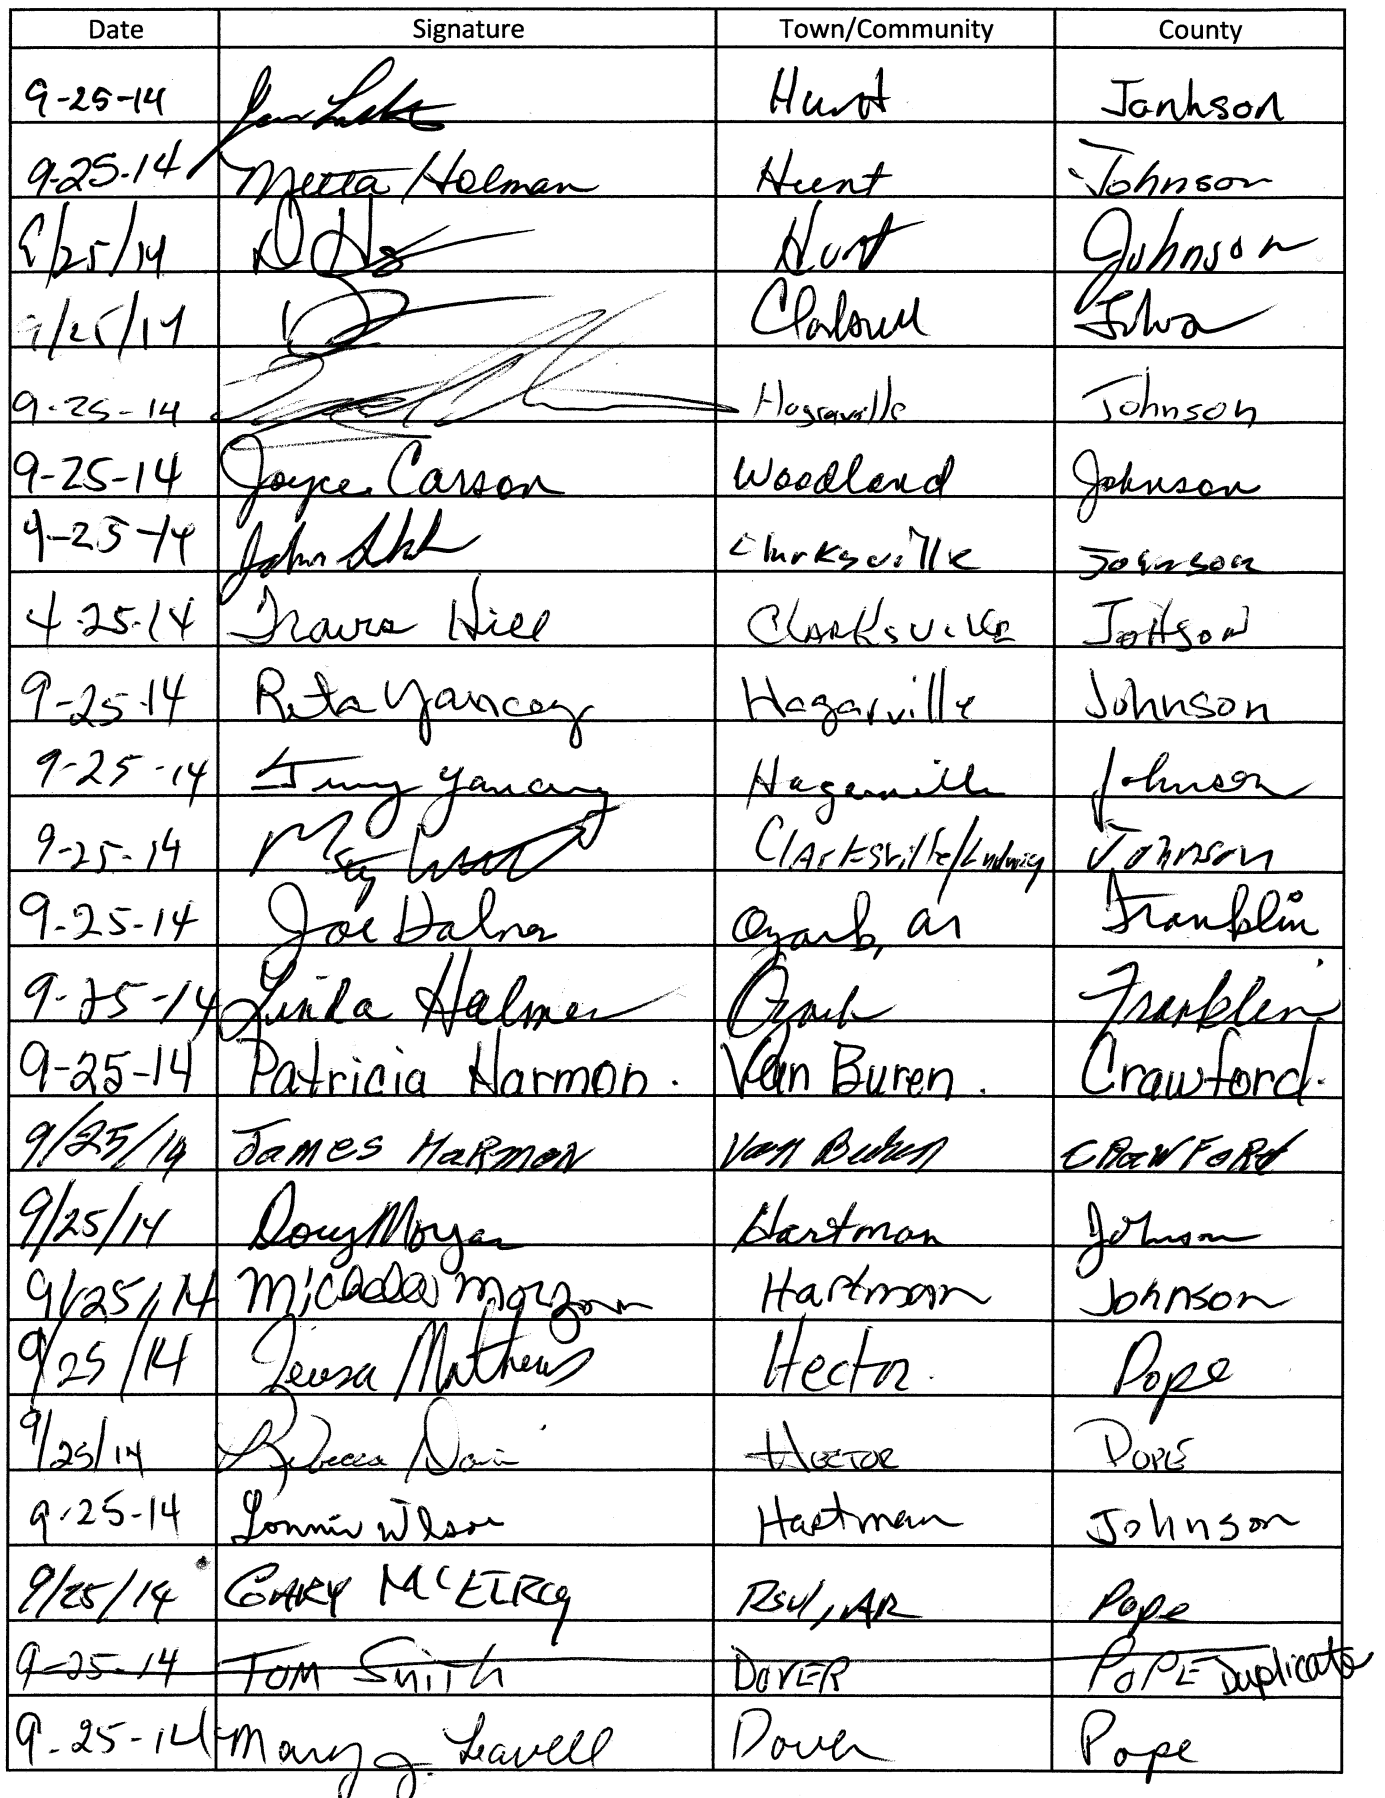 Date Signature Town/Community County
9-25-14 Hunt Jonhson
9-25-14 Metta Holman Hunt Johnson
9/25/14 Hunt Johnson
9/25/14
9-25-14 Johnson
9-25-14 Joyce Carson Woodland Johnson
9-25-14 John Clarksville Johnson
4-25-14 Travis Hill Clarksville
9-25-14 Rita Yancey Hagarville Johnson
9-25-14 Jimmy Yancey Hagarville Johnson
9-25-14 Clarksville/Ludwig Johnson
9-25-14 Joe Ozark, ar Franklin
9-25-14 Linda Ozark Franklin
9-25-14 Patricia Harmon. Van Buren. Crawford.
9/25/14 James Harmon Van Buren CRAWFORD
9/25/14 Doug Morgan Hartman Johnson
9/25/14 Morgan Hartman Johnson
9/25/14 Teresa Mathews Hector. Pope
9/25/14 Rebecca Hector Pope
9-25-14 Lonnie Wilson Hartman Johnson
9/25/14 GARY RSVL, AR Pope
9-25-14 TOM Smith DOVER POPE Duplicate
9-25-14 Mary J. Leavell Dover Pope